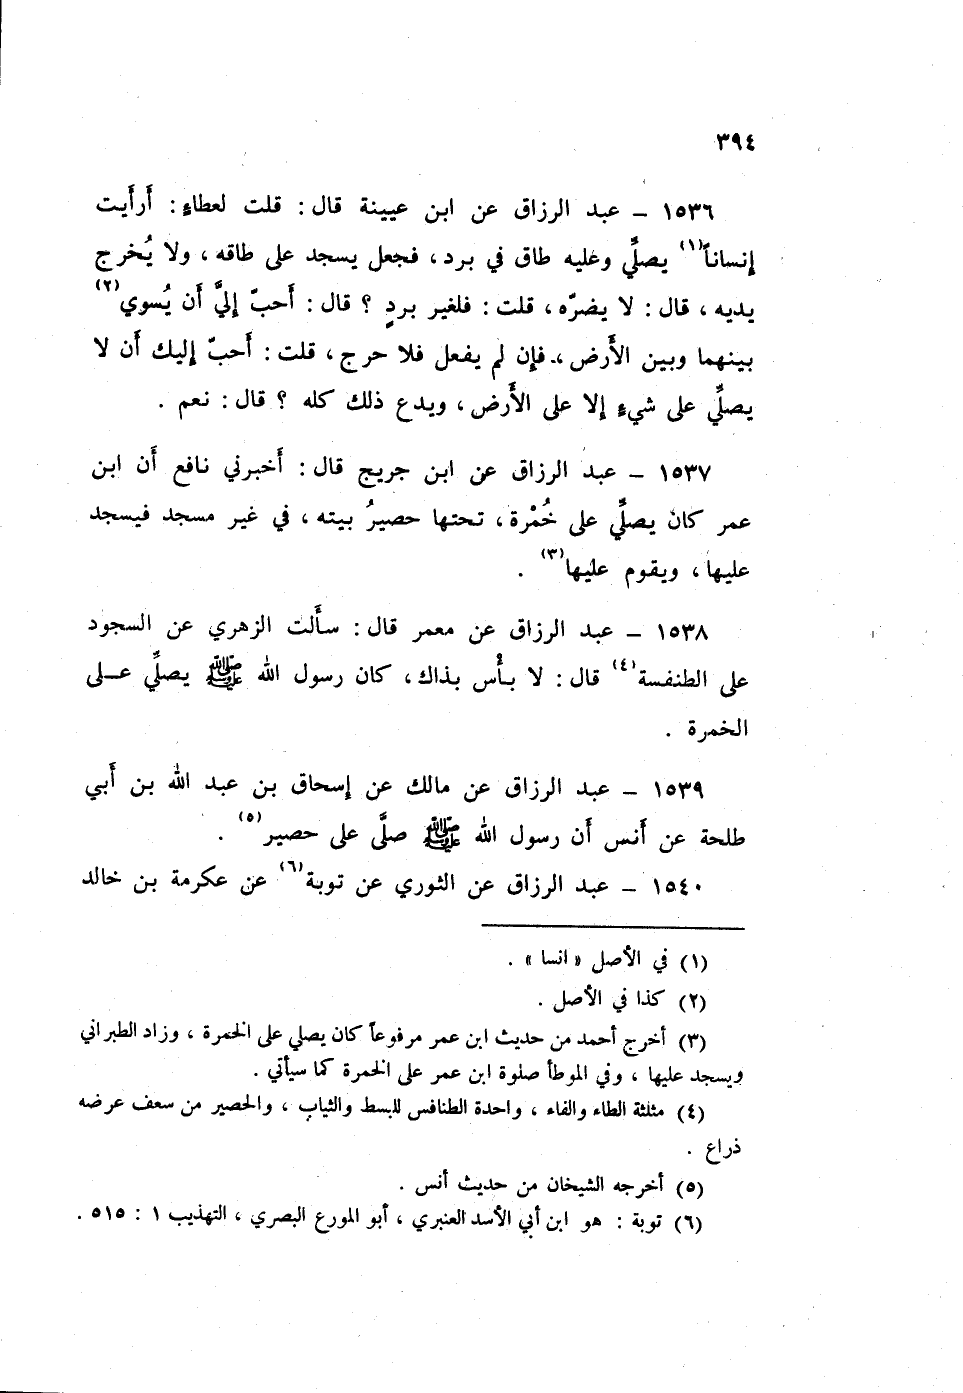 ٣٩٤
١٥٣٦ – عبد الرزاق عن ابن عيينة قال : قلت لعطاءٍ : أَرأَيت
إنساناً(١) يصلِّي وعليه طاق في برد ، فجعل يسجد على طاقه ، ولا يُخرج
يديه ، قال : لا يضرّه ، قلت : فلغير بردٍ ؟ قال : أَحبّ إليَّ أَن يُسوي(٢)
بينهما وبين الأَرض ، فإن لم يفعل فلا حرج ، قلت : أَحبّ إليك أَن لا
يصلِّي على شيءٍ إلا على الأَرض ، ويدع ذلك كله ؟ قال : نعم .
١٥٣٧ – عبد الرزاق عن ابن جريج قال : أَخبرني نافع أَن ابن
عمر كان يصلِّي على خُمْرة ، تحتها حصيرُ بيته ، في غير مسجد فيسجد
عليها ، ويقوم عليها(٣) .
١٥٣٨ – عبد الرزاق عن معمر قال : سأَلت الزهري عن السجود
على الطنفسة(٤) قال : لا بأْس بذاك ، كان رسول الله ﷺ يصلِّي عـلى
الخمرة .
١٥٣٩ – عبد الرزاق عن مالك عن إسحاق بن عبد الله بن أَبي
طلحة عن أَنس أَن رسول الله ﷺ صلَّى على حصير(٥) .
١٥٤٠ – عبد الرزاق عن الثوري عن توبة(٦) عن عكرمة بن خالد
(١) في الأصل « انسا » .
(٢) كذا في الأصل .
(٣) أخرج أحمد من حديث ابن عمر مرفوعاً كان يصلي على الخمرة ، وزاد الطبراني
ويسجد عليها ، وفي الموطأ صلوة ابن عمر على الخمرة كما سيأتي .
(٤) مثلثة الطاء والفاء ، واحدة الطنافس للبسط والثياب ، والحصير من سعف عرضه
ذراع .
(٥) أخرجه الشيخان من حديث أنس .
(٦) توبة : هو ابن أبي الأسد العنبري ، أبو المورع البصري ، التهذيب ١ : ٥١٥ .